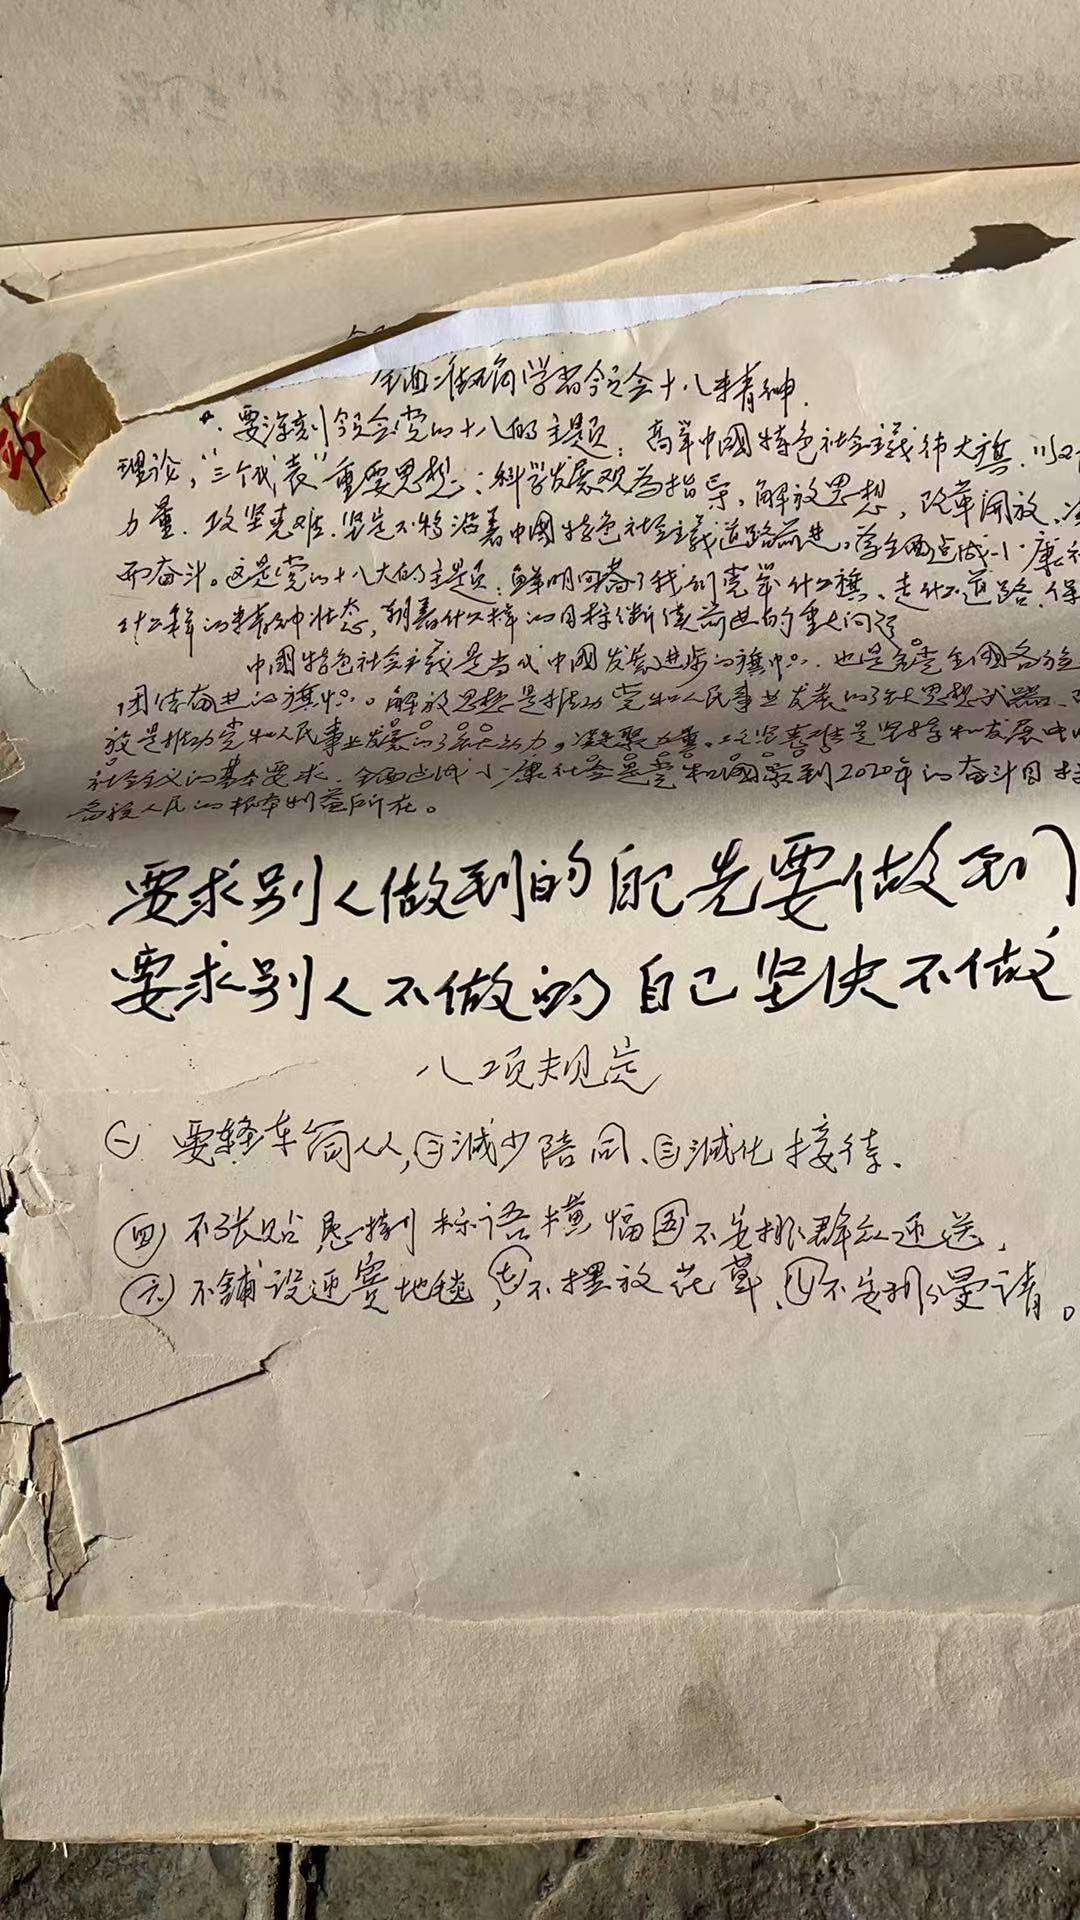 全面准确学习领会十八精神.
要深刻领会党的十八的主题：高举中國特色社会主義伟大旗.以
理论，“三个代表”重要思想；科学发展观为指导，解放思想，改革開放，
力量.攻坚克难.坚定不移沿着中國特色社会主義道路前进，为全面建成小康社
而奋斗。这是党的十八大的主题：鲜明回答了我们党举什么旗、走什么道路、保
什么样的精神状态，朝着什么样的目标继续前进的重大问题
中國特色社会主義是当代中國发展进步的旗帜.也是全党全國各族
团结奋进的旗帜。解放思想是推动党和人民事业发展的强大思想武器、
放是推动党和人民事业发展的强大动力，凝聚力量.攻坚克难是坚持和发展中
社会主义的基本要求.全面建成小康社会是党和國家到2020年的奋斗目标
各族人民的根本利益所在。
要求别人做到的自己先要做到
要求别人不做的自己坚决不做
八项规定
㈠要轻车简从，㈡减少陪同、㈢减化接待、
㈣不张贴悬掛标语横幅㈤不安排群众迎送，
㈥不铺设迎宾地毯，㈦不摆放花草、㈧不安排宴请。